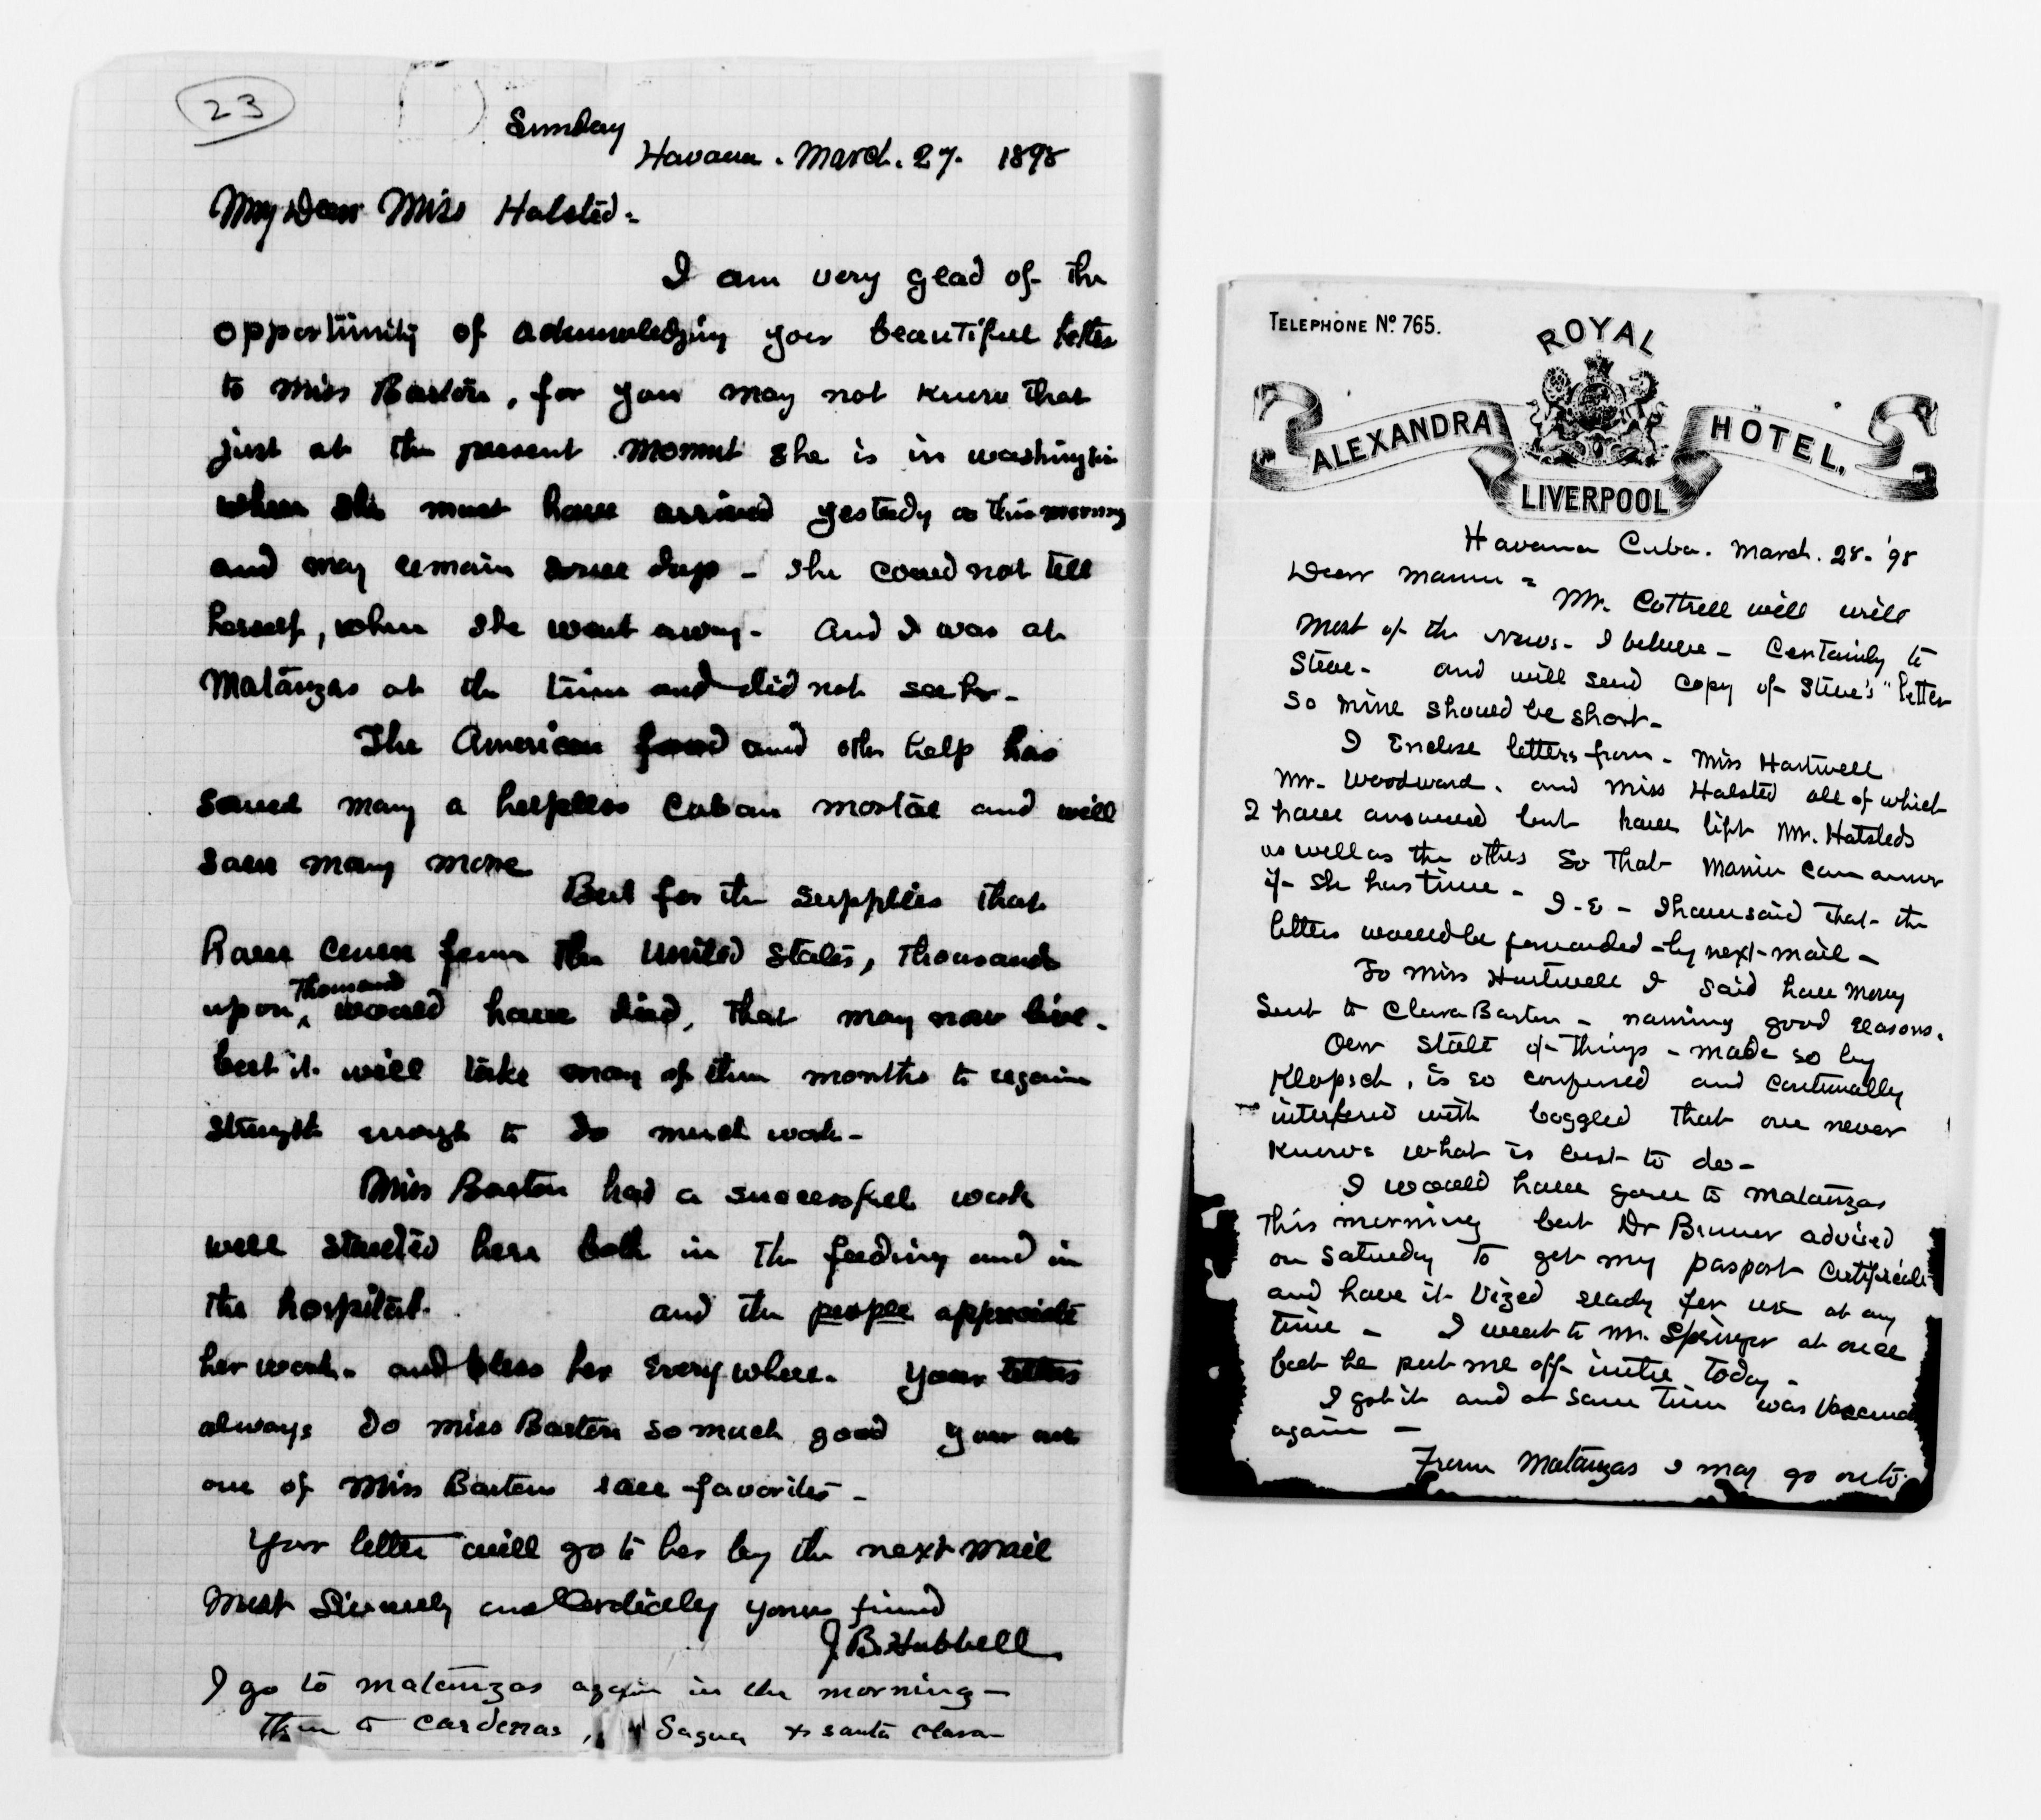 23
Sunday
Havana. March. 27. 1898
My Dear Miss Halsted-
I am very glad of the
opportunity of acknowledging your beautiful letter
to Miss Barton, for you may not know that
just at the present moment she is in Washington
where she must have arrived yesterdy or this morning
and may remain some days - she could not tell
herself, when she went away. And I was at
Matanzas at the time and did not see her-
The American food and other help has
saved many a helpless Cuban mortal and will
save many more.
But for the supplies that
have come from the United States, thousands
upon thousand would have died, that may now live.
but it will take many of them months to regain
strength enough to do much work-
Miss Barton had a successful work
well started here both in the feeding and in
the hospital. and the people appreciate
her work. and bless her everywhere. Your letters
always do Miss Barton so much good you are
one of Miss Bartons rare favorites-
Your letter will go to her by the next mail
Most Sincerely and Cordially your friend
J. B. Hubbell
I go to Matanzas again in the morning-
Then to Cardenas, Sagua & Santa Clara-
TELEPHONE No. 765.
ROYAL
ALEXANDRA HOTEL,
LIVERPOOL
Havana Cuba. March. 28. '98
Dear Mamie =
Mr. Cottrell will will
most of the news- I believe- Certainly to
Steve- and will send copy of Steve's" letter
so mine should be short-
I Enclose letters from- Miss Hartwell
Mr. Woodward. and Miss Halsted all of which
I have answered but have left Mr. Halsteds
as well as the others so that Mamie can answr
if she has time- I-E- I have said that- the
letters would be forwarded-by next-mail-
To Miss Hartwell I said have money
sent to Clara Barton- naming good reasons.
Our state of things- made so by
Klopsch, is so confused and continually
interfered with boggled that one never
knows what is best to do-
I would have gone to Matanzas
this morning but Dr Brunner advised
on Saturday to get my passport certificate
and have it vized ready for use at any
time- I went to Mr. Springer at once
but he put me off until today-
I got it and at same time was
again-
From Matanzas I may go on to